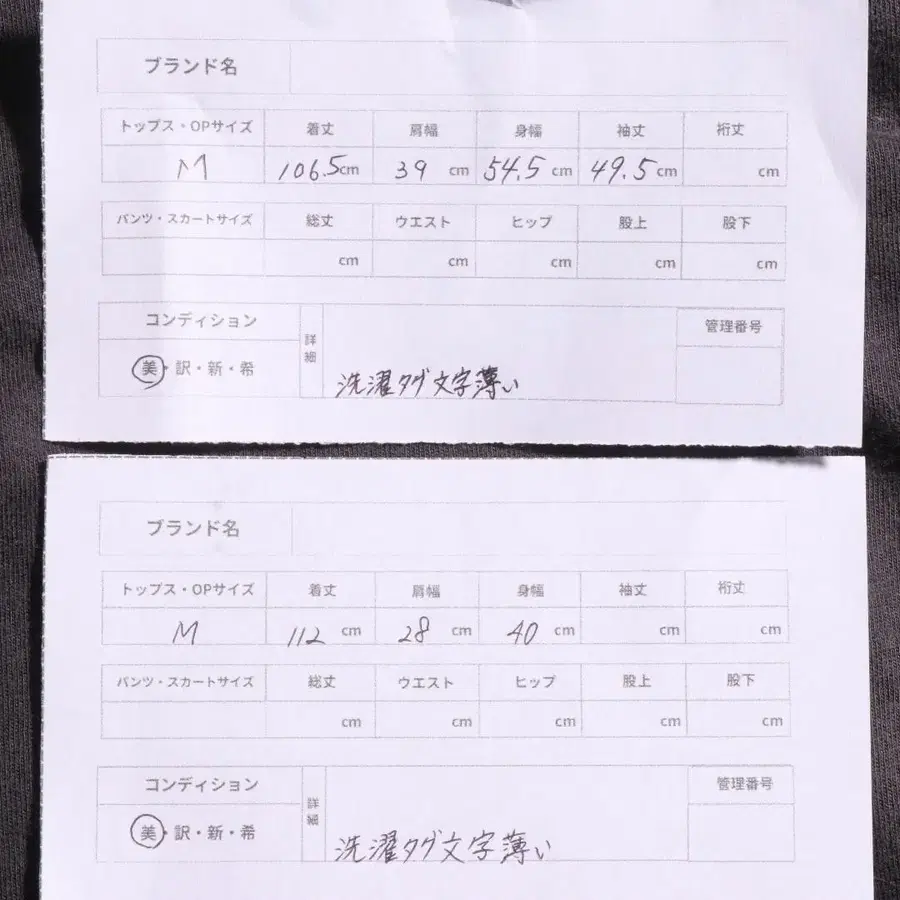 ブランド名
トップス・OPサイズ 着丈 肩幅 身幅 袖丈 裄丈
M 106.5cm 39 cm 54.5 cm 49.5 cm cm
パンツ・スカートサイズ 総丈 ウエスト ヒップ 股上 股下
cm cm cm cm cm
コンディション 詳細 管理番号
美・訳・新・希 洗濯タグ文字薄い
ブランド名
トップス・OPサイズ 着丈 肩幅 身幅 袖丈 裄丈
M 112 cm 28 cm 40 cm cm cm
パンツ・スカートサイズ 総丈 ウエスト ヒップ 股上 股下
cm cm cm cm cm
コンディション 詳細 管理番号
美・訳・新・希 洗濯タグ文字薄い